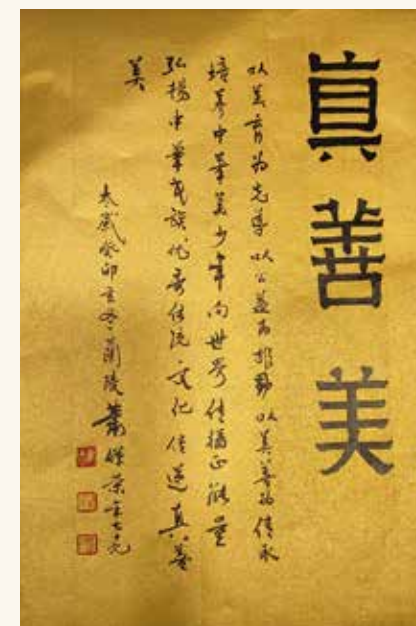 眞善美
以美育为先导以公益为推动以美善为传承
培养中华美少年向世界传播正能量
弘扬中华民族优秀传统文化传递真善
美
癸卯冬蘭陵萧荣年七十九